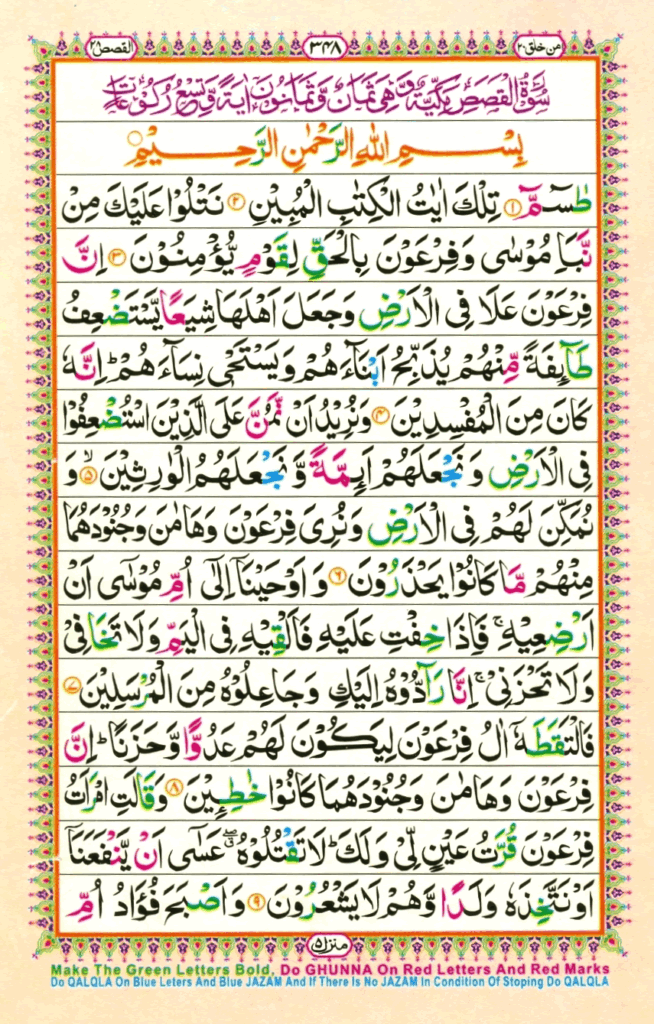 من خلق ٢٠
٣٤٨
القصص ٢٨
سُوْرَةُ الْقَصَصِ مَكِّيَّةٌ وَّهِيَ ثَمَانٌ وَّثَمَانُوْنَ اٰيَةً وَّتِسْعُ رُكُوْعَاتٍ
بِسْمِ اللّٰهِ الرَّحْمٰنِ الرَّحِيْمِ
طٰسٓمّٓ ۝١ تِلْكَ اٰيٰتُ الْكِتٰبِ الْمُبِيْنِ ۝٢ نَتْلُوْا عَلَيْكَ مِنْ
نَّبَاِ مُوْسٰى وَفِرْعَوْنَ بِالْحَقِّ لِقَوْمٍ يُّؤْمِنُوْنَ ۝٣ اِنَّ
فِرْعَوْنَ عَلَا فِى الْاَرْضِ وَجَعَلَ اَهْلَهَا شِيَعًا يَّسْتَضْعِفُ
طَآئِفَةً مِّنْهُمْ يُذَبِّحُ اَبْنَآءَهُمْ وَيَسْتَحْىٖ نِسَآءَهُمْ ؕ اِنَّهٗ
كَانَ مِنَ الْمُفْسِدِيْنَ ۝٤ وَنُرِيْدُ اَنْ نَّمُنَّ عَلَى الَّذِيْنَ اسْتُضْعِفُوْا
فِى الْاَرْضِ وَنَجْعَلَهُمْ اَئِمَّةً وَّنَجْعَلَهُمُ الْوٰرِثِيْنَ ۙ۝٥ وَ
نُمَكِّنَ لَهُمْ فِى الْاَرْضِ وَنُرِىَ فِرْعَوْنَ وَهَامٰنَ وَجُنُوْدَهُمَا
مِنْهُمْ مَّا كَانُوْا يَحْذَرُوْنَ ۝٦ وَاَوْحَيْنَآ اِلٰٓى اُمِّ مُوْسٰٓى اَنْ
اَرْضِعِيْهِ ۚ فَاِذَا خِفْتِ عَلَيْهِ فَاَلْقِيْهِ فِى الْيَمِّ وَلَا تَخَافِىْ
وَلَا تَحْزَنِىْ ۚ اِنَّا رَآدُّوْهُ اِلَيْكِ وَجَاعِلُوْهُ مِنَ الْمُرْسَلِيْنَ ۝٧
فَالْتَقَطَهٗۤ اٰلُ فِرْعَوْنَ لِيَكُوْنَ لَهُمْ عَدُوًّا وَّحَزَنًا ؕ اِنَّ
فِرْعَوْنَ وَهَامٰنَ وَجُنُوْدَهُمَا كَانُوْا خٰطِـِٕيْنَ ۝٨ وَقَالَتِ امْرَاَتُ
فِرْعَوْنَ قُرَّتُ عَيْنٍ لِّىْ وَلَكَ ؕ لَا تَقْتُلُوْهُ ۖ عَسٰٓى اَنْ يَّنْفَعَنَآ
اَوْ نَتَّخِذَهٗ وَلَدًا وَّهُمْ لَا يَشْعُرُوْنَ ۝٩ وَاَصْبَحَ فُؤَادُ اُمِّ
منزل ٥
Make The Green Letters Bold, Do GHUNNA On Red Letters And Red Marks
Do QALQLA On Blue Leters And Blue JAZAM And If There Is No JAZAM In Condition Of Stoping Do QALQLA